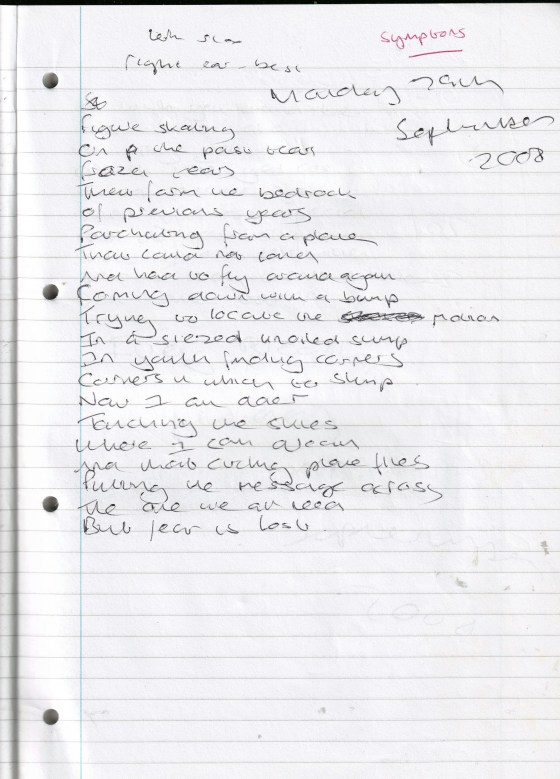 symptoms
Monday
September
2008
Figure skating
On the past tears
frozen years
They form the bedrock
of previous years
Parachuting from a plane
That could not land
And had to fly around again
Coming down with a bump
Trying to locate the motion
In a siezed unoiled sump
In youth finding corners
Corners in which to slump
Now I an adult
Touching the skies
Where I can dream
And that circling plane flies
Putting the message across
The one we all need
But fear is lost.